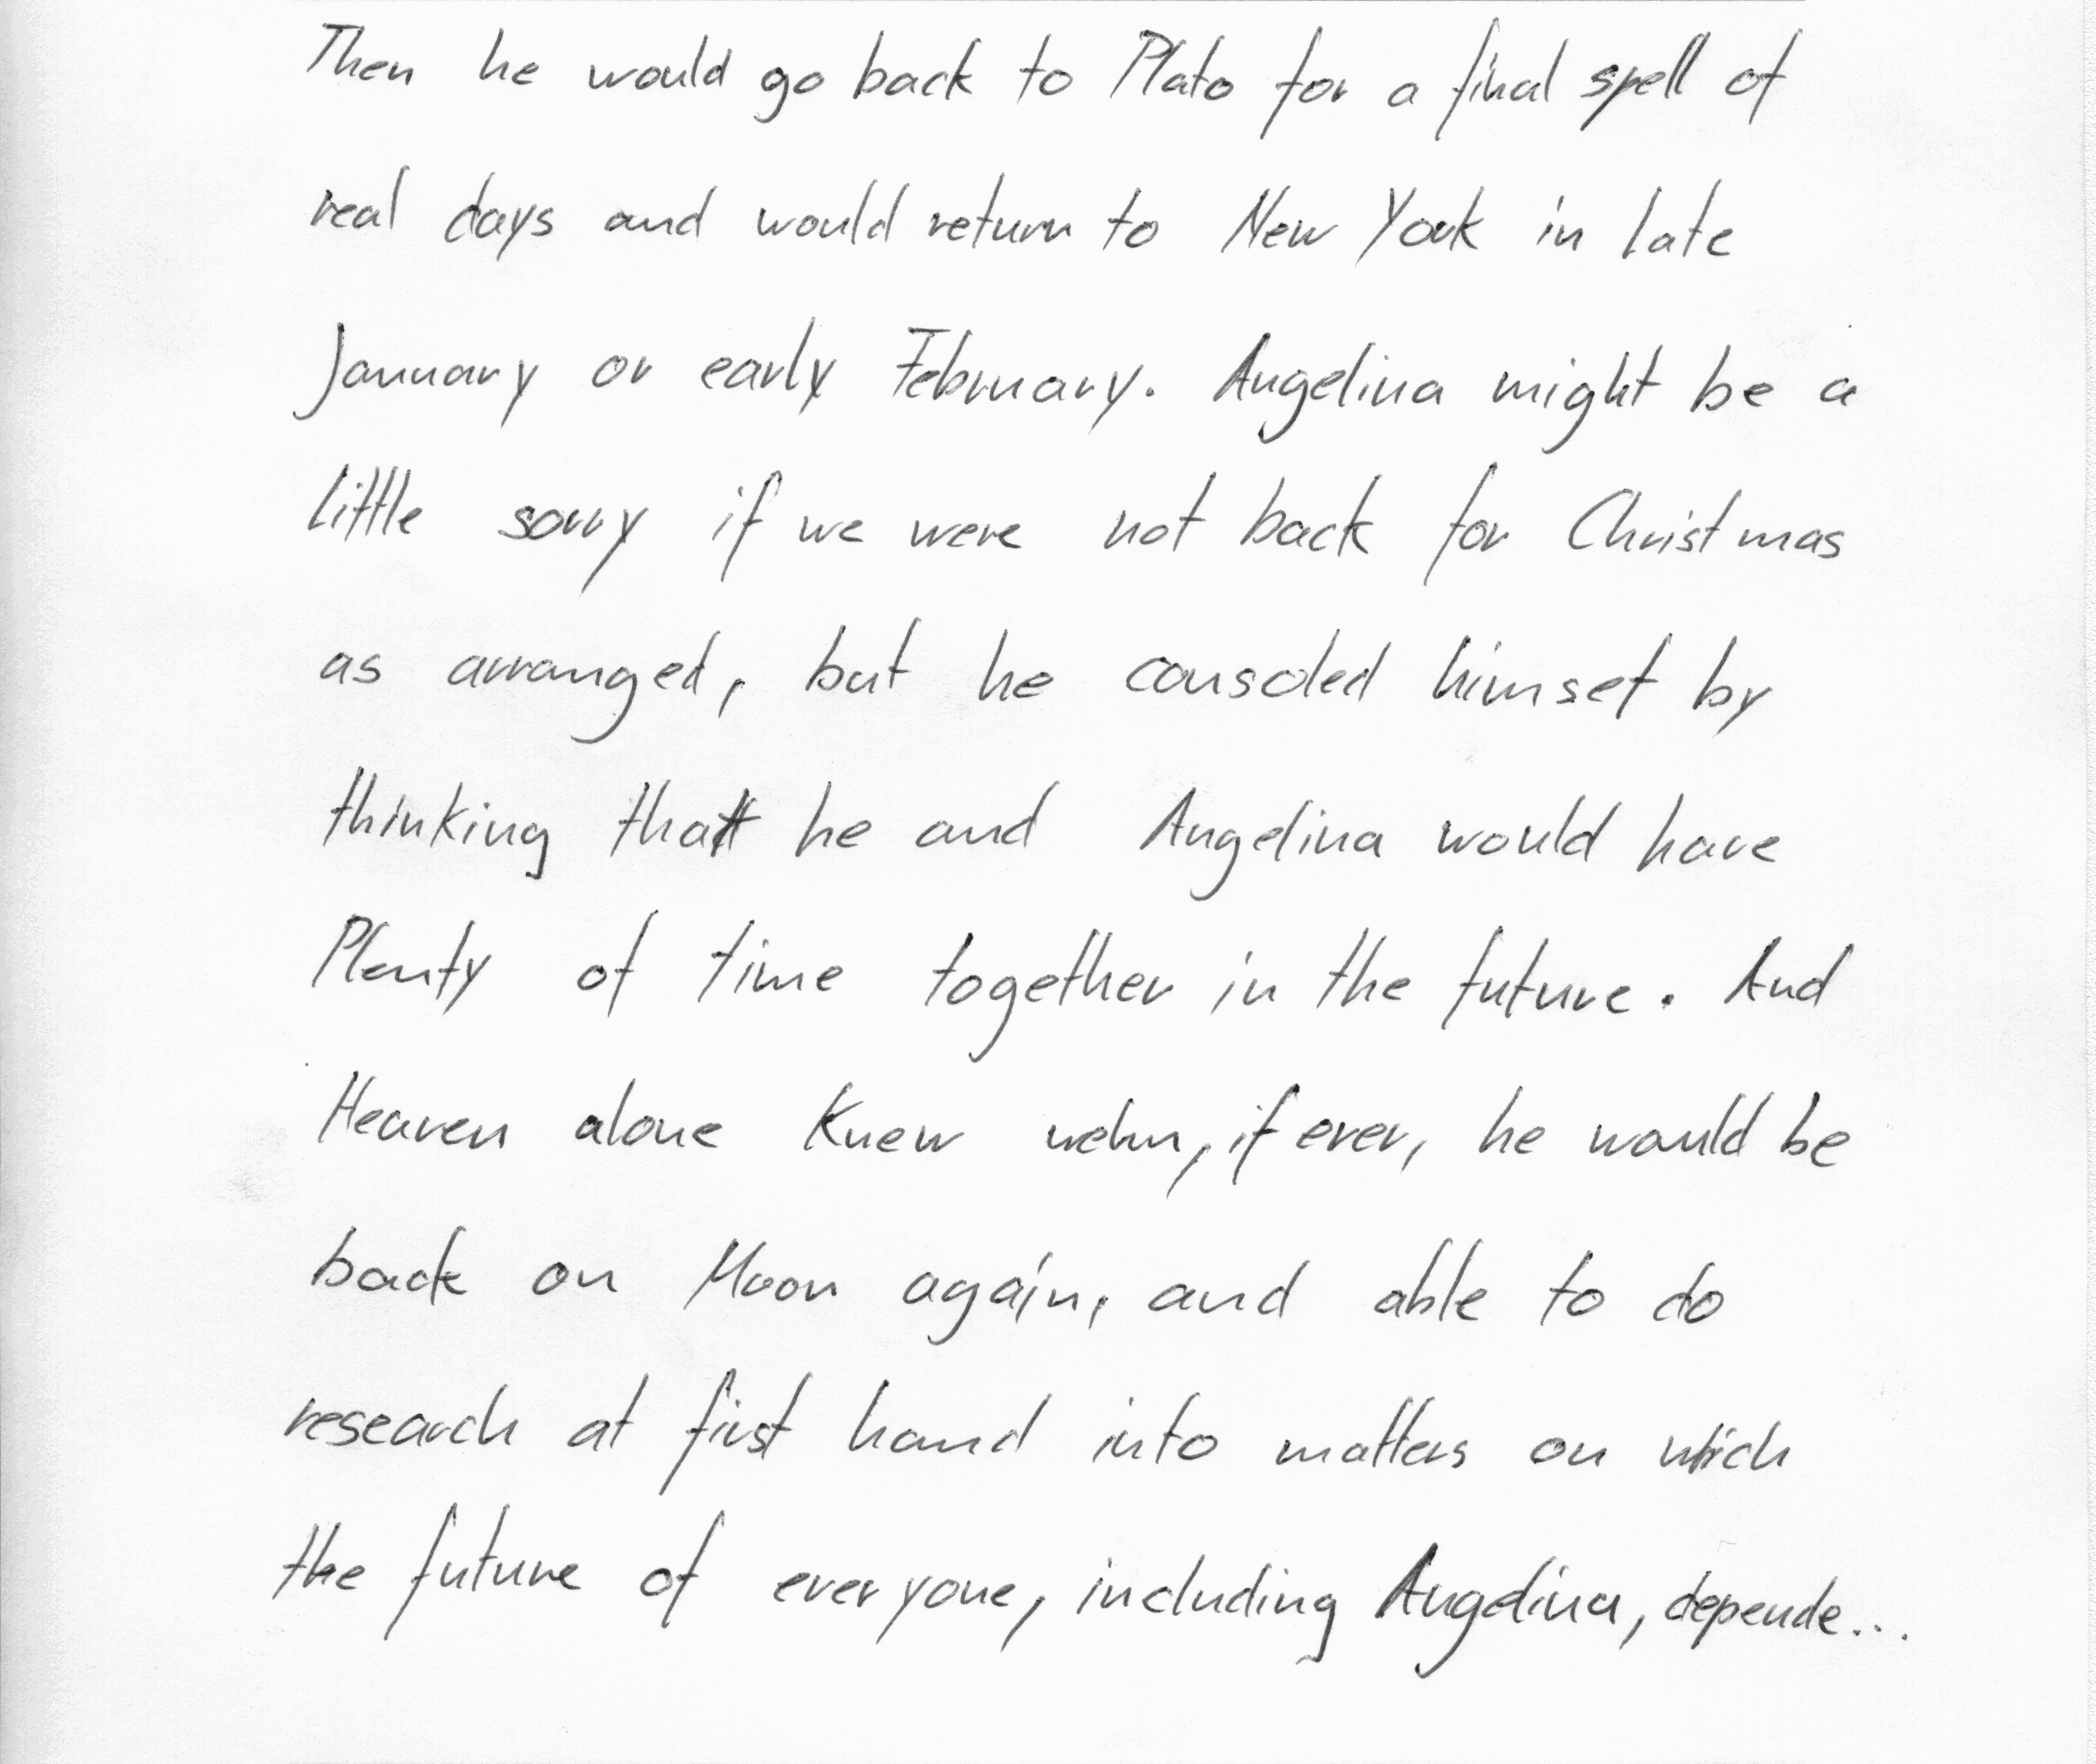 Then he would go back to Plato for a final spell of
real days and would return to New York in late
January or early February. Angelina might be a
little sorry if we were not back for Christmas
as arranged, but he consoled himset by
thinking that he and Angelina would have
Plenty of time together in the future. And
Heaven alone knew wehn, if ever, he would be
back on Moon again, and able to do
research at first hand into matters on which
the future of everyone, including Angelina, depende...